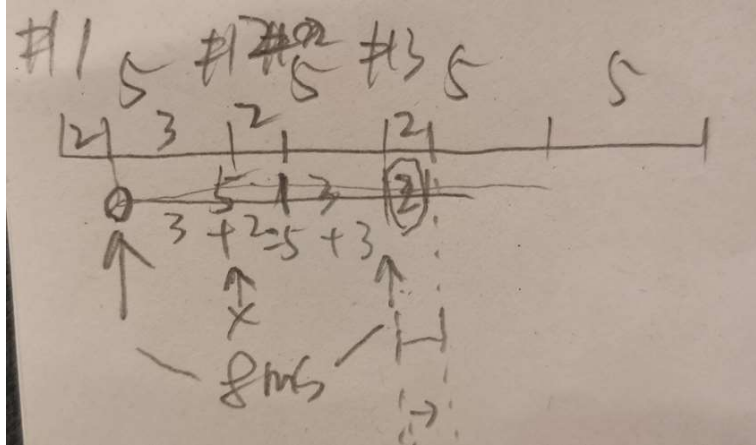 #1 #2 #3
5 5 5 5
2 3 2 2
5 3 2
3 + 2 = 5 + 3
x
8ms